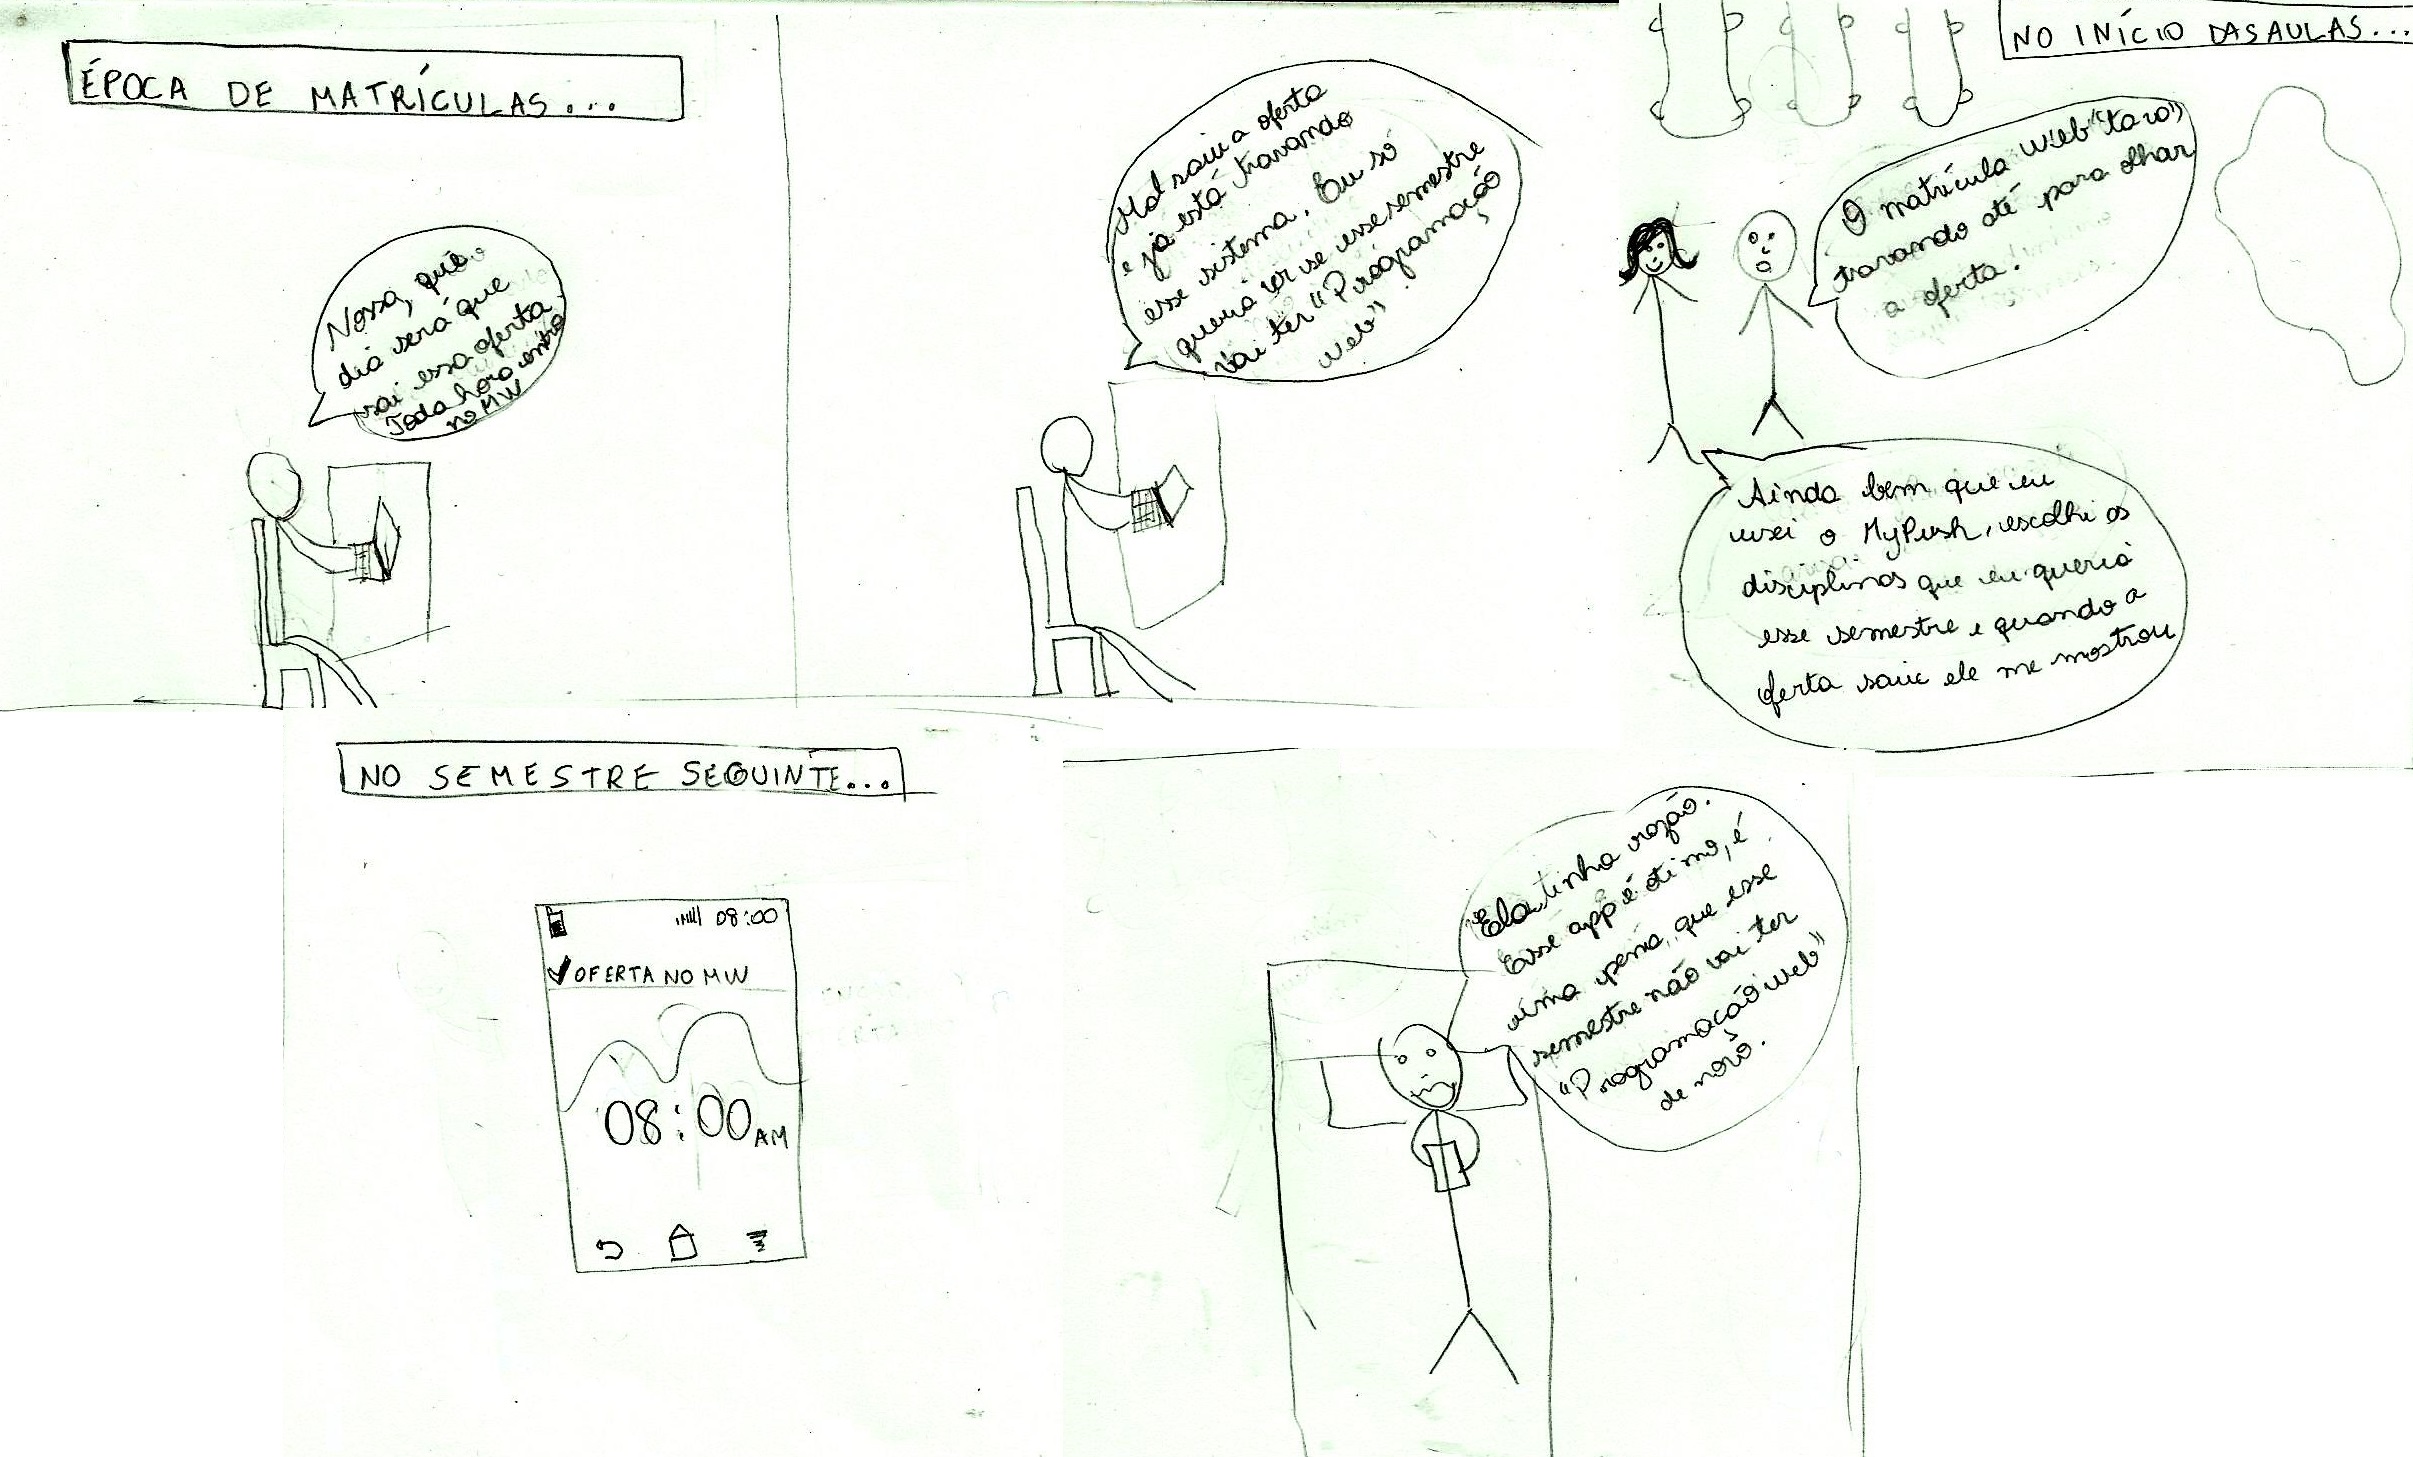 ÉPOCA DE MATRÍCULAS...
Nossa, que
dia será que
sai essa oferta
Toda hora entro
no MW
Mal saiu a oferta
e já está travando
esse sistema. Eu só
queria ver se esse semestre
vai ter "Programação
web"
NO INÍCIO DAS AULAS...
O matrícula web "tava"
travando até para olhar
a oferta.
Ainda bem que eu
usei o MyPush, escolhi as
disciplinas que eu queria
esse semestre e quando a
oferta saiu ele me mostrou
NO SEMESTRE SEGUINTE...
08:00
OFERTA NO MW
08:00 AM
Ela tinha razão.
Esse app é ótimo, é
uma pena, que esse
semestre não vai ter
"Programação web"
de novo.